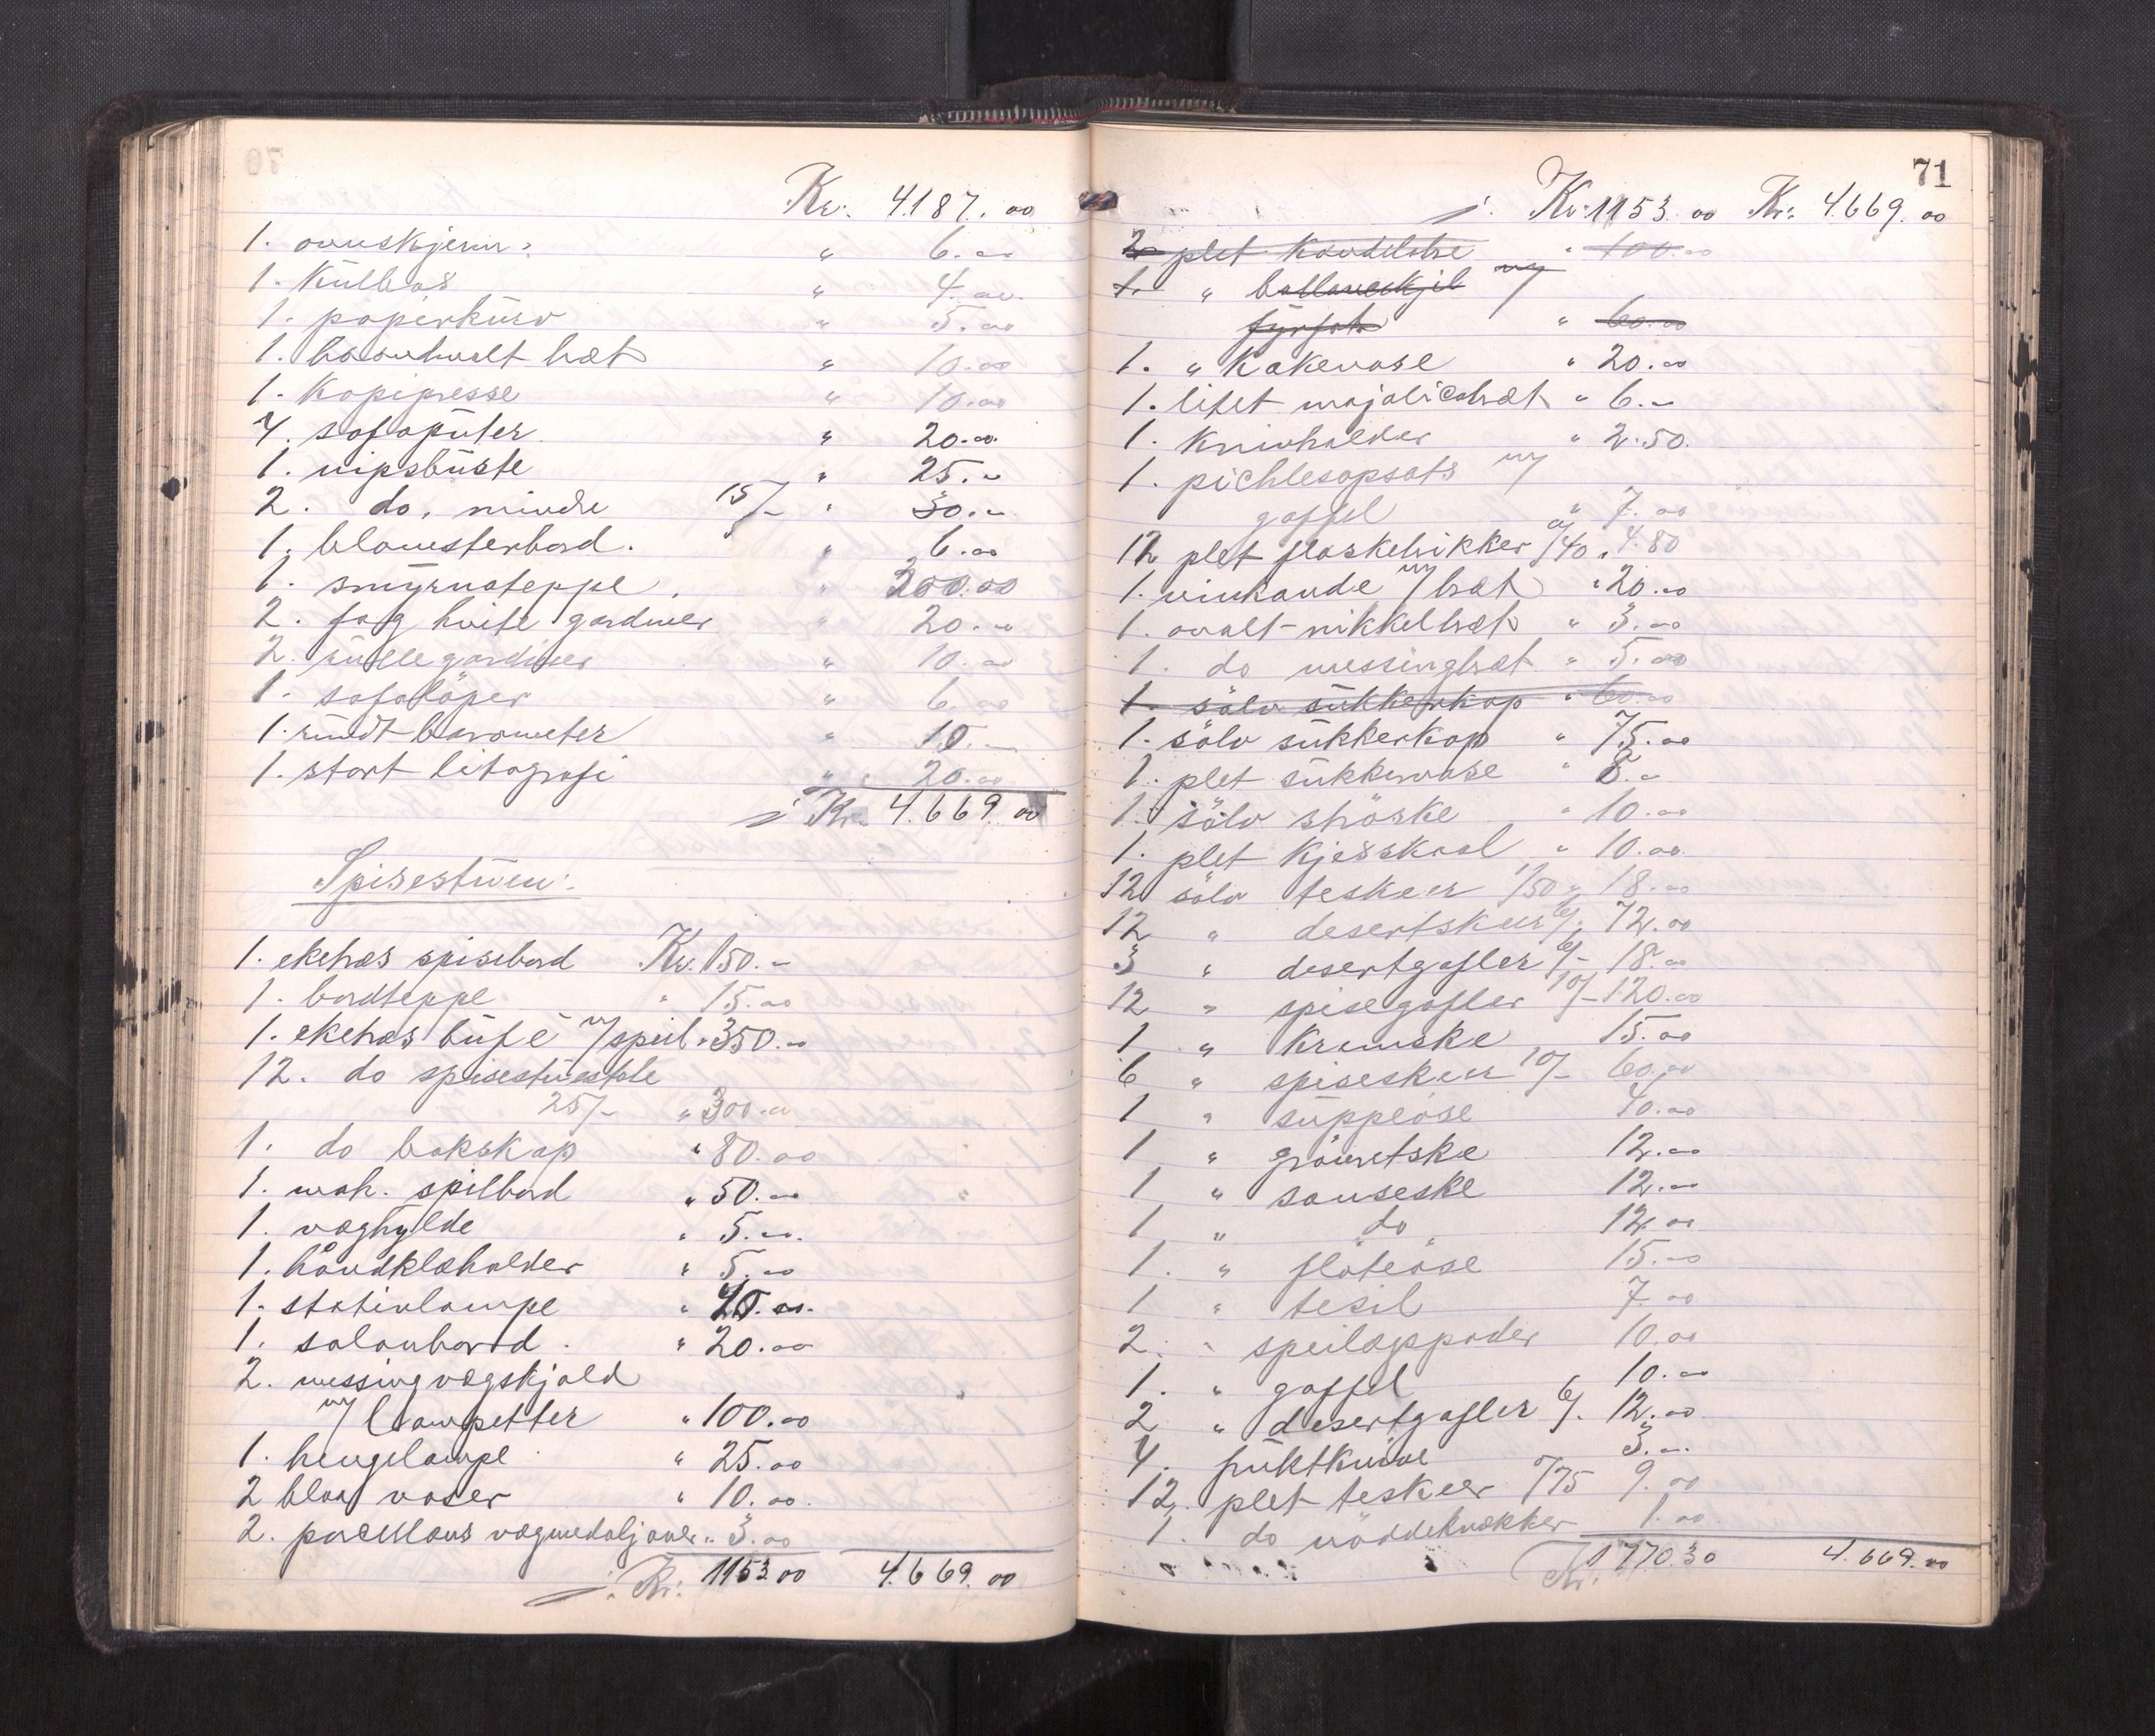 Kr. 4.187.00
1. ovnskjerm. " 6.00
1. Kulbox " 4.00
1. papirkurv " 5.00
1. haandmalt bræt " 10.00
1. Kopipresse " 10.00
4. sofaputer " 20.00
1. nipsbuste " 25.00
2. do. mindre 15/- " 30.00
1. blomsterbord. " 6.00
1. smyrnateppe. " 300.00
2. fag hvite gardiner " 20.00
2. rullegardiner " 10.00
1. sofalöper " 6.00
1. rundt barometer " 10.00
1. stort litografi " 20.00
Kr. 4.669.00
Spisestuen:
1. eketræs spisebord Kr. 150.-
1. bordteppe " 15.00
1. eketræs bufé m/speil " 350.00
12. do spisestuestole
25/- " 300.00
1. do bokskap " 80.00
1. mah. spilbord " 50.00
1. væghylde " 5.00
1. håndklæholder " 5.00
1. stativlampe " 40.00
1. salonbord. " 20.00
2. messingvægskjold
m/lampetter " 100.00
1. hengelampe " 25.00
2 blaa vaser " 10.00
2. porcellæns vægmedaljoner " 3.00
Kr: 1153.00 4.669.00
71
Kr. 1153.00 Kr: 4.669.00
2 plet Kandelabre " 100.00
1. " m/
fyrfat " 60.00
1. " Kakevase " 20.00
1. litet majolicabræt " 6.-
1. Knivholder " 2.50.
1. pichlesopsats m/
gaffel " 7.00
12 plet flaskebrikker a/40 " 4.80
1. vinkande m/bræt " 20.00
1. ovalt nikkelbræt " 3.00
1. do messingbræt " 5.00
1. sölv sukkerkop " 60.00
1. sölv sukkerkop " 75.00
1. plet sukkervase " 8.-
1. sölv ströske " 10.00
1. plet Kjesskaal " 10.00
12 sölv teskeer 1/50 " 18.00
12 " desertskeer 6/- 72.00
3 " desertgafler 6/- 18.00
12 " spisegafler 10/- 120.00
1 " Kremske 15.00
6 " spiseskeer 10/- 60.00
1 " suppeöse 40.00
1 " grönretske 12.00
1 " sauseske 12.00
1 " do 12.00
1. " flöteöse 15.00
1 " tesil 7.00
2. " speilægspader 10.00
1. " gaffel 10.00
2 " desertgafler 6/- 12.00
4. fruktknive 3.00
12. plet teskeer /75 9.00
1. do nöddeknækker 1.00
Kr. 1770.30 4.669.00